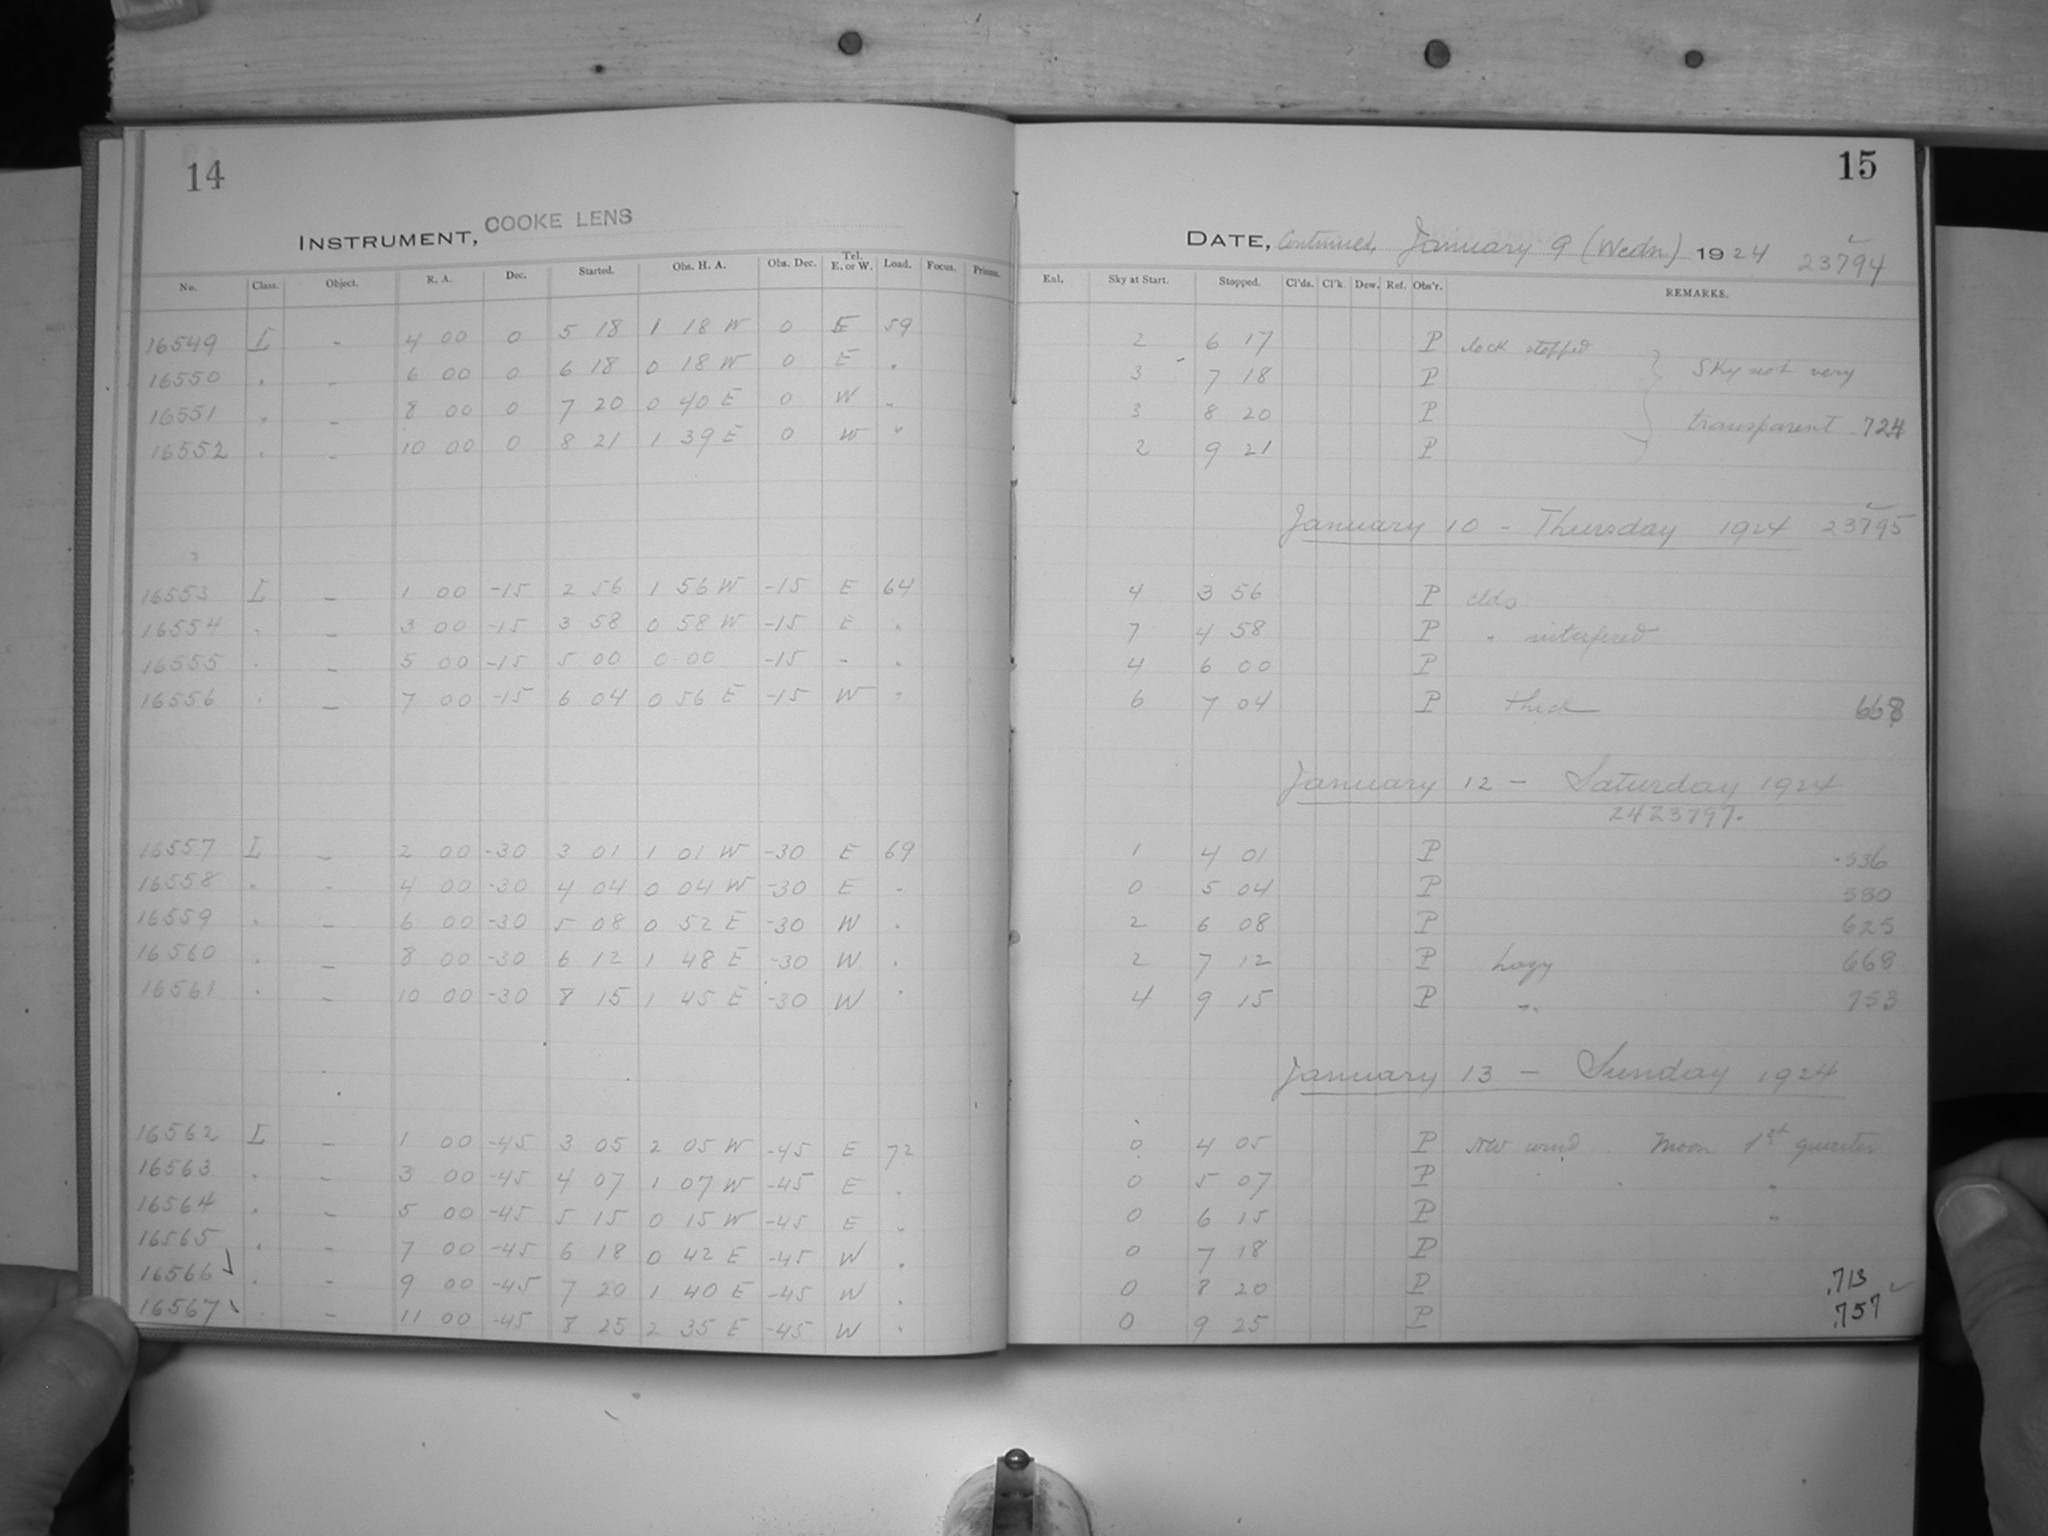 14
INSTRUMENT, COOKE LENS
No. Class. Object. R. A. Dec. Started. Obs. H. A. Obs. Dec. Tel. E. or W. Load. Focus. Prisms.
16549 I - 4 00 0 5 18 1 18 W 0 E 59
16550 " - 6 00 0 6 18 0 18 W 0 E "
16551 " - 8 00 0 7 20 0 40 E 0 W "
16552 " - 10 00 0 8 21 1 39 E 0 W "
16553 I - 1 00 -15 2 56 1 56 W -15 E 64
16554 " - 3 00 -15 3 58 0 58 W -15 E "
16555 " - 5 00 -15 5 00 0 00 -15 - "
16556 " - 7 00 -15 6 04 0 56 E -15 W "
16557 I - 2 00 -30 3 01 1 01 W -30 E 69
16558 " - 4 00 -30 4 04 0 04 W -30 E "
16559 " - 6 00 -30 5 08 0 52 E -30 W "
16560 " - 8 00 -30 6 12 1 48 E -30 W "
16561 " - 10 00 -30 8 15 1 45 E -30 W "
16562 I - 1 00 -45 3 05 2 05 W -45 E 72
16563 " - 3 00 -45 4 07 1 07 W -45 E "
16564 " - 5 00 -45 5 15 0 15 W -45 E "
16565 " - 7 00 -45 6 18 0 42 E -45 W "
16566 " - 9 00 -45 7 20 1 40 E -45 W "
16567 " - 11 00 -45 8 25 2 35 E -45 W "
15
DATE, Continued, January 9 (Wedn) 1924 23794
Enl. Sky at Start. Stopped. Cl'ds. Cl'k. Dew. Ref. Obs'r. REMARKS.
2 6 17 P clock stopped
3 7 18 P Sky not very
3 8 20 P transparent 724
2 9 21 P
January 10 - Thursday 1924 23795
4 3 56 P clds
7 4 58 P " interfered
4 6 00 P
6 7 04 P thick 668
January 12 - Saturday 1924
2423797.
1 4 01 P .536
0 5 04 P 580
2 6 08 P 625
2 7 12 P hazy 668
4 9 15 P " 753
January 13 - Sunday 1924
0 4 05 P NW wind Moon 1st quarter
0 5 07 P " "
0 6 15 P "
0 7 18 P
0 8 20 P .713
0 9 25 P .757